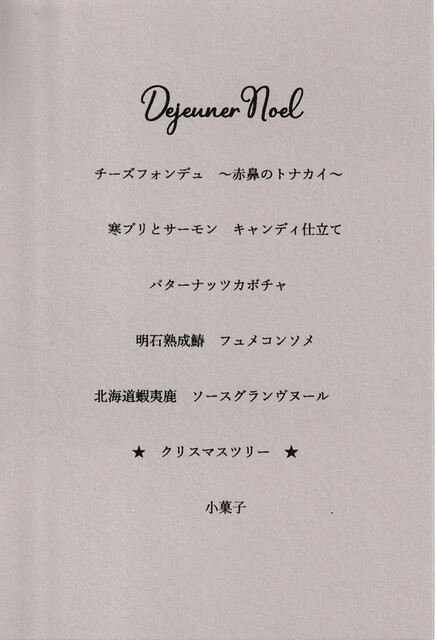 Dejeuner Noel
チーズフォンデュ　～赤鼻のトナカイ～
寒ブリとサーモン　キャンディ仕立て
バターナッツカボチャ
明石熟成鰆　フュメコンソメ
北海道蝦夷鹿　ソースグランヴヌール
★　クリスマスツリー　★
小菓子